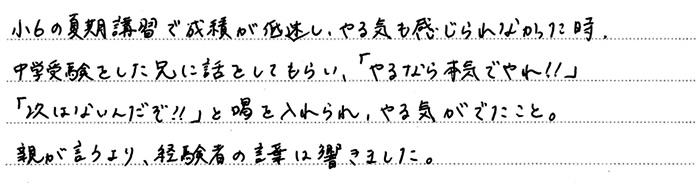 小6の夏期講習で成績が低迷し、やる気も感じられなかった時、
中学受験をした兄に話をしてもらい、「やるなら本気でやれ!!」
「次はないんだぞ!!」と喝を入れられ、やる気がでたこと。
親が言うより、経験者の言葉は響きました。